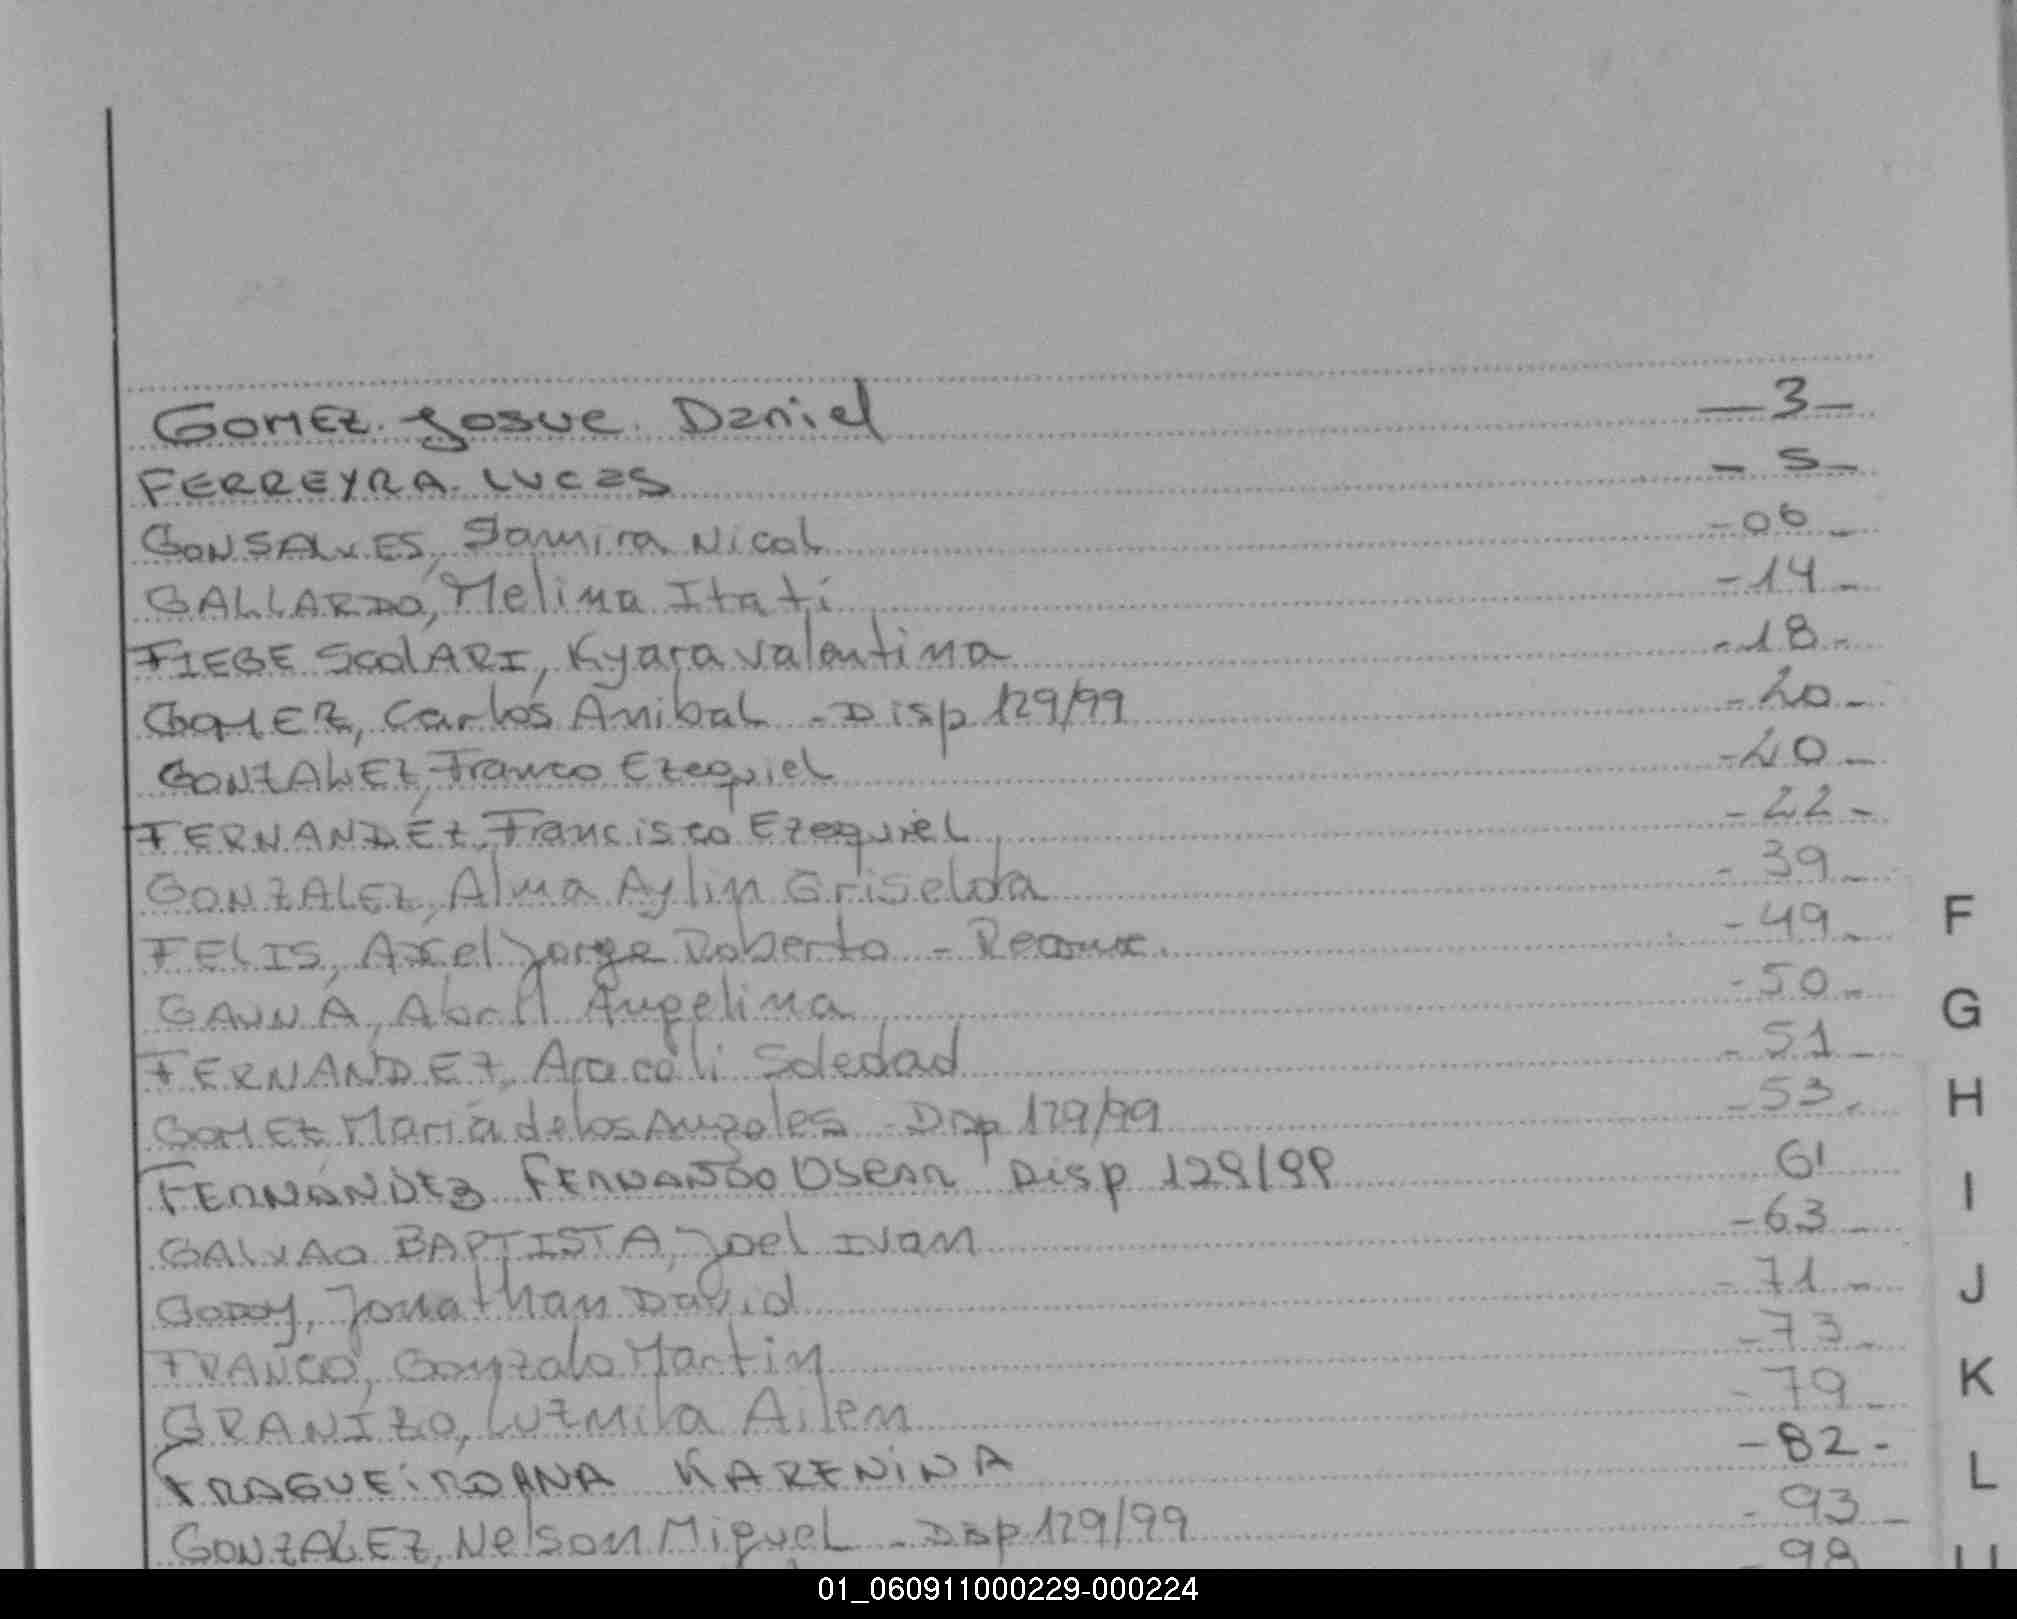 GOMEZ. Josue. Daniel — 3 —
FERREYRA. Lucas — 5 —
GONSALVES, Samira Nicol - 06 -
GALLARDO, Melina Itatí - 14 -
FIEBE ScolARI, Kyara Valentina - 18 -
GOMEZ, Carlos Anibal - Disp 129/99 - 20 -
GONZALEZ, Franco Ezequiel - 20 -
FERNANDEZ, Francisco Ezequiel - 22 -
GONZALEZ, Alma Aylin Griselda - 39 -
FELIS, Axel Jorge Roberto - 49 -
GAUNA, Abril Angelina - 50 -
FERNANDEZ, Araceli Soledad - 51 -
GOMEZ María de los Angeles - Disp 129/99 - 53 -
FERNÁNDEZ FERNANDO OSCAR Disp 129/99 61
GALVAO BAPTISTA, Joel Ivan - 63 -
GODOY, Jonathan David - 71 -
FRANCO, Gonzalo Martin - 73 -
GRANIZO, Luzmila Ailen - 79 -
FRAGUEiRO ANA KARENiNA - 82 -
GONZALEZ, Nelson Miguel - Disp 129/99 - 93 -
- 98
F
G
H
I
J
K
L
01_060911000229-000224